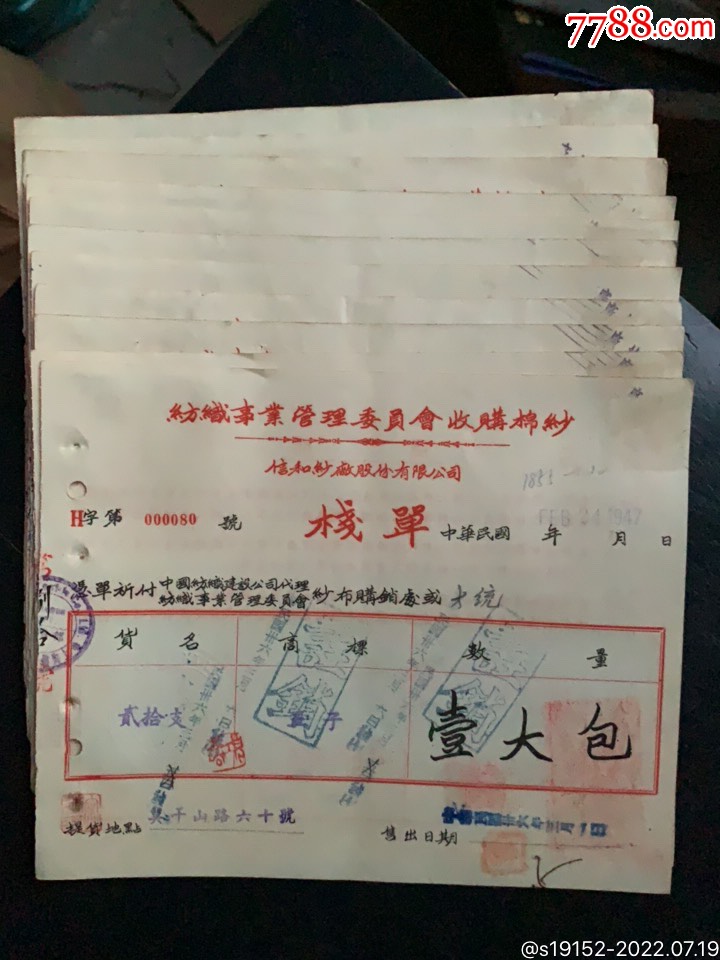 7788.com
紡織事業管理委員會收購棉紗
信和紗廠股份有限公司
H字第 000080 號 棧單 中華民國 年 月 日
FEB 1947
憑單祈付 中國紡織建設公司代理 紗布購銷處或 大統
紡織事業管理委員會
貨名 商標 數量
貳拾支 子 壹大包
提貨地點 莫干山路六十號 售出日期 中華民國卅六年三月一日
@s19152-2022.07.19